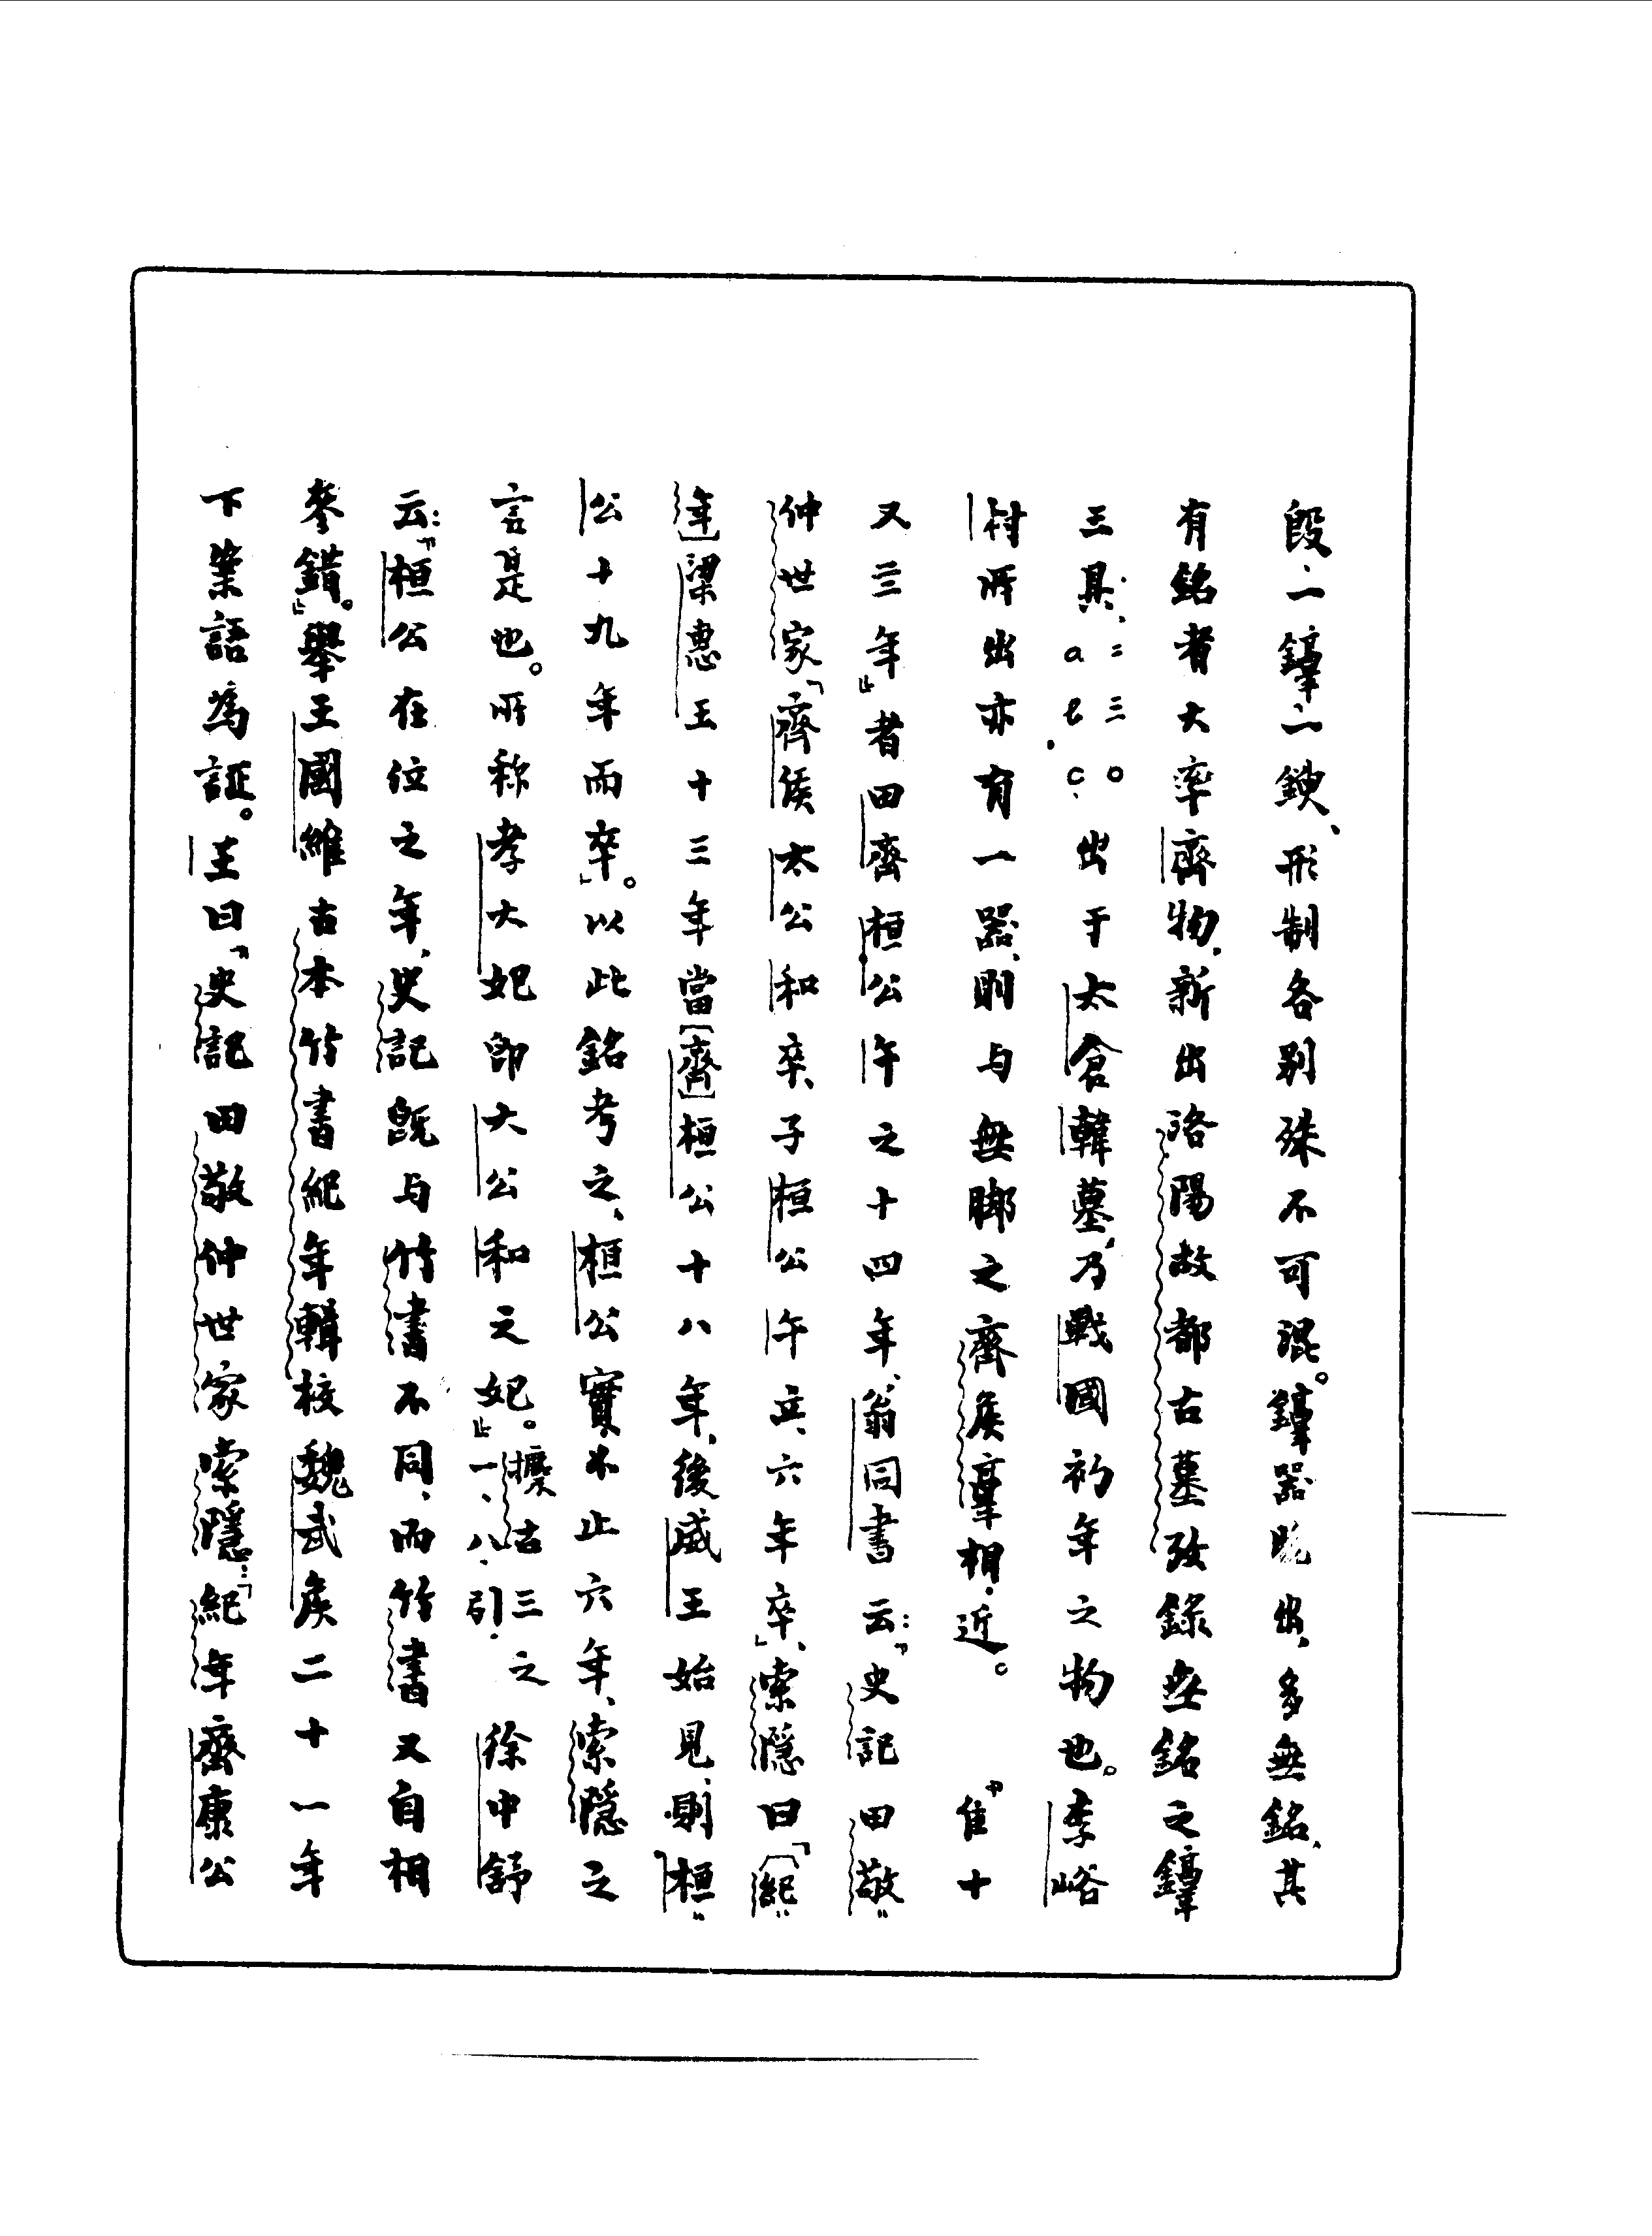 段、一鐜一鍥、形制各别殊不可混。鐜器晚出、多無銘、其
有銘者大率齊物、新出洛陽故都古墓攷錄無銘之鐜
三具、二三〇 a b c、出于太倉韓墓、乃戰國初年之物也。李峪
村所出亦有一器、則与無腳之齊侯𦎫相近。 「隹十
又三年」者田齊桓公午之十四年、翁同書云:「史記田敬
仲世家『齊侯太公和卒、子桓公午立、六年卒』、索隱曰『〔紀
年〕梁惠王十三年當〔齊〕桓公十八年、後威王始見、則桓
公十九年而卒』。以此銘考之、桓公實不止六年、索隱之
言是也。所称孝大妃即大公和之妃。」攈古三之一、八、引. 徐中舒
云:「桓公在位之年、史記既与竹書不同、而竹書又自相
參錯。」舉王國維古本竹書紀年輯校魏武侯二十一年
下案語為証。王曰「史記田敬仲世家索隱:『紀年齊康公